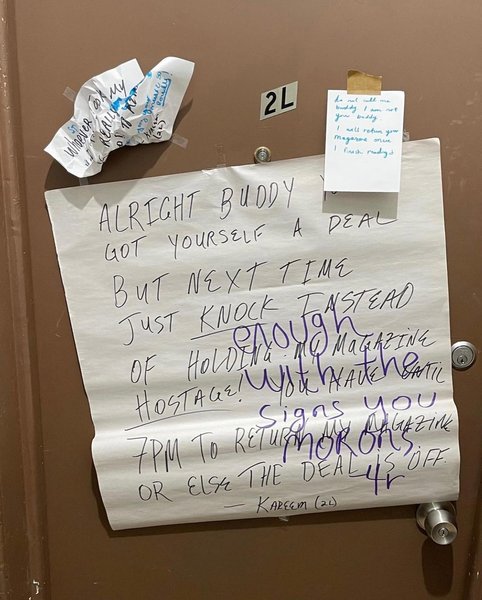 2L
WHOEVER
MY
REALLY
KAREEM (2L)
do not call me
buddy I am not
your buddy.
I will return your
magazine once
I finish reading it
ALRIGHT BUDDY
GOT YOURSELF A DEAL
BUT NEXT TIME
JUST KNOCK INSTEAD
OF HOLDING MY MAGAZINE
HOSTAGE! YOU HAVE UNTIL
7PM TO RETURN MY MAGAZINE
OR ELSE THE DEAL IS OFF.
— KAREEM (2L)
enough
with the
signs you
morons.
4r